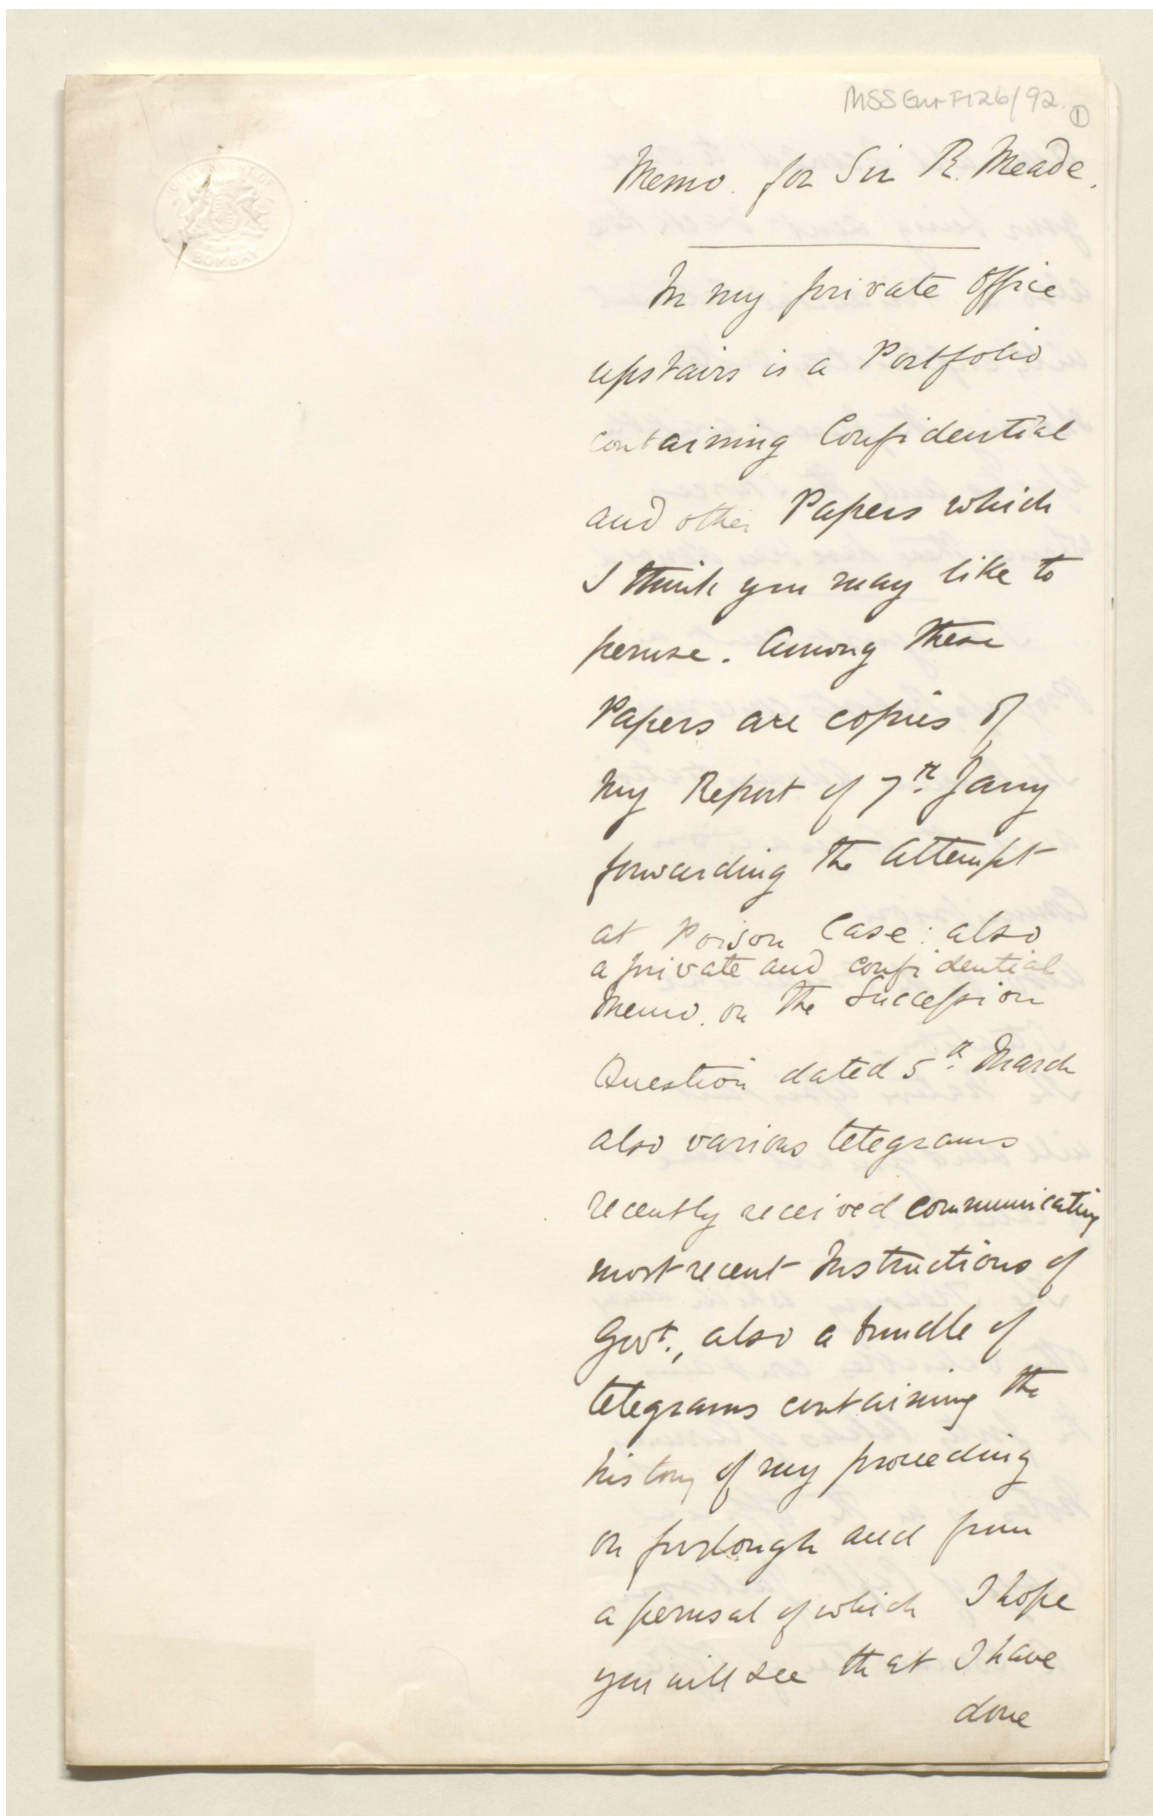 MSS Eur F126/92
1
GOVERNMENT OF
BOMBAY
Memo. for Sir R. Meade.
In my private Office
upstairs is a Portfolio
containing Confidential
and other Papers which
I think you may like to
peruse. Among these
Papers are copies of
my Report of 7th Jany
forwarding the Attempt
at Poison Case: also
a private and confidential
Memo. on the Succession
Question dated 5th March
also various telegrams
recently received communicating
most recent Instructions of
Govt., also a bundle of
telegrams containing the
history of my proceeding
on furlough and from
a perusal of which I hope
you will see that I have
done